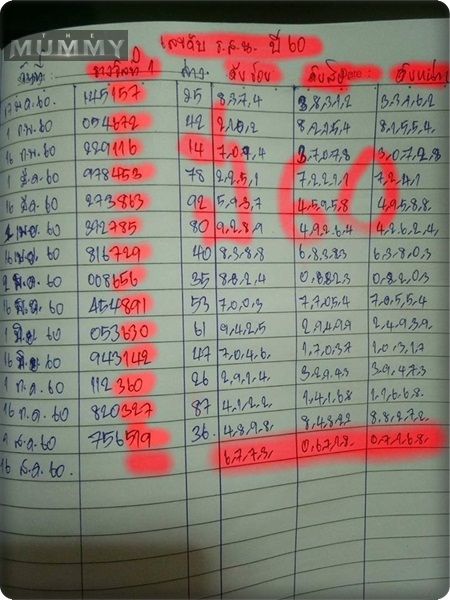 MUMMY
เลขดับ ร.ส.น. ปี 60
วันที่ รางวัลที่ 1 ล่าง ดับร้อย ดับสิบ ดับหน่วย
17 ม.ค. 60. 145157 25 8,3,7,4 3,8,3,1,2 3,3,1,6,2
1 ก.พ. 60 054672 42 2,1,0,2 8,2,2,5,4 8,1,5,5,4
16 ก.พ. 60 229116 14 7,0,7,4 3,7,0,7,8 3,0,7,2,8
1 มี.ค. 60 978453 78 2,2,5,1 7,2,2,2,1 7,2,4,1
16 มี.ค. 60 273863 92 5,9,3,7 4,5,9,5,8 4,9,5,8,8
1 เม.ย. 60 392785 80 9,2,8,9 4,9,2,6,4 4,2,6,2,4
16 เม.ย. 60 816729 40 8,3,8,8 6,8,3,8,3 6,3,8,0,3
2 พ.ค. 60 008656 35 8,8,2,4 0,8,8,2,3 0,8,2,0,3
16 พ.ค. 60 454891 53 7,0,0,3 7,7,0,5,4 7,0,5,5,4
1 มิ.ย. 60 053630 61 9,4,2,5 2,9,4,9,9 2,4,9,3,9
16 มิ.ย. 60 943142 47 7,0,4,6 1,7,0,3,7 1,0,3,1,7
1 ก.ค. 60 112360 26 2,9,1,4 3,2,9,4,3 3,9,4,7,3
16 ก.ค. 60 820327 87 4,1,2,2 1,4,1,6,8 1,1,6,6,8
1 ส.ค. 60 756519 36 4,8,9,8 8,4,8,2,2 8,8,2,7,2
16 ส.ค. 60. 6,7,7,3, 0,6,7,1,8 0,7,1,6,8